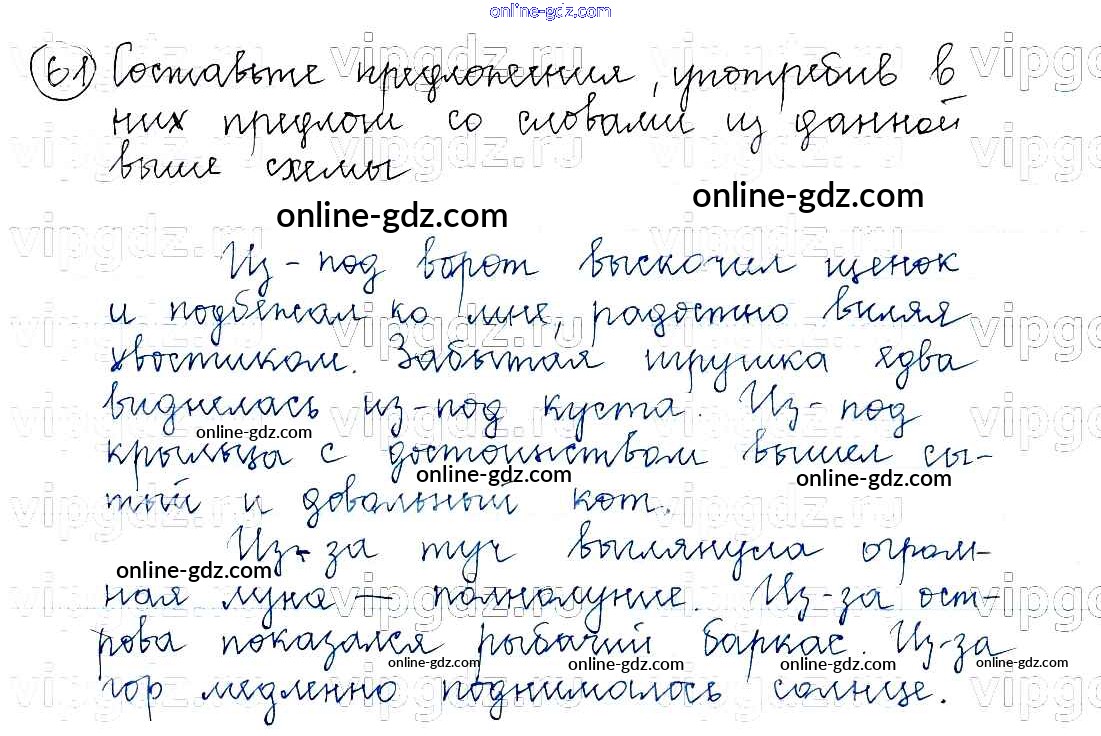 online-gdz.com
61 Составьте предложения, употребив в
них предлог со словами из данной
выше схемы
online-gdz.com online-gdz.com
Из-под ворот выскочил щенок
и подбежал ко мне, радостно виляя
хвостиком. Забытая игрушка едва
виднелась из-под куста. Из-под
online-gdz.com
крыльца с достоинством вышел сы-
online-gdz.com online-gdz.com
тый и довольный кот.
Из-за туч выглянула огром-
online-gdz.com
ная луна — полнолуние. Из-за ост-
рова показался рыбачий баркас. Из-за
online-gdz.com online-gdz.com online-gdz.com online-gdz.com
гор медленно поднималось солнце.
vipgdz.ru